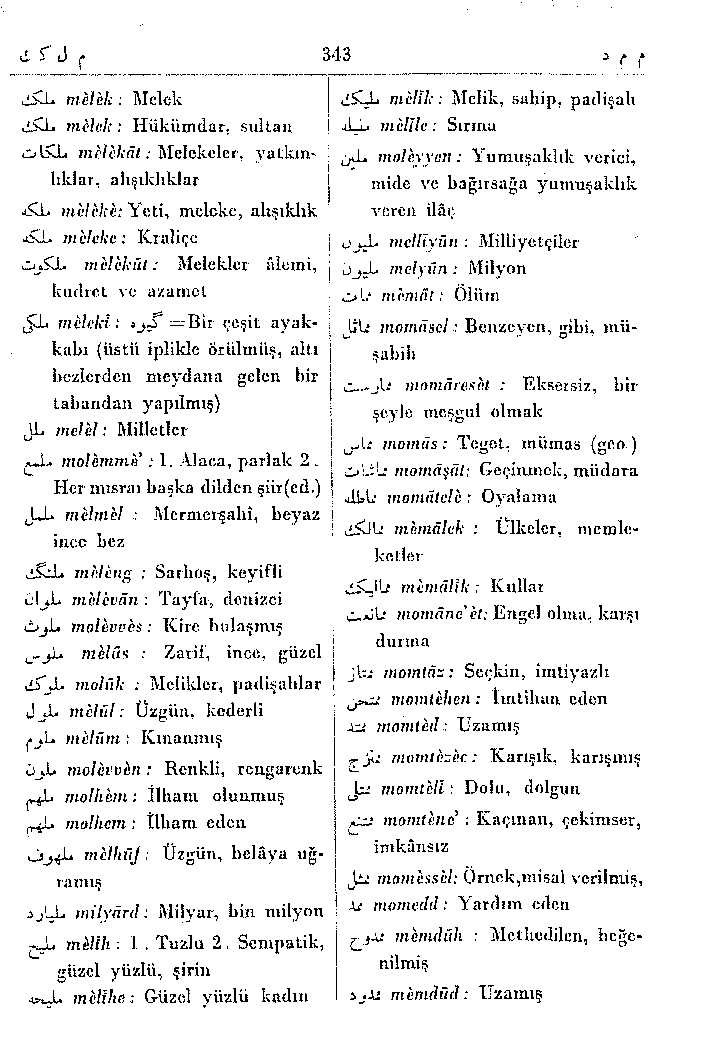 م ل ک ك
343
م م د
ملک mèlèk : Melek
ملک mèlek : Hükümdar, sultan
ملکات mèlèkāt : Melekeler, yatkın-
lıklar, alışıklıklar
ملکه mèlèkè: Yeti, meleke, alışıklık
ملکه mèleke : Kraliçe
ملکوت mèlèkūt : Melekler âlemi,
kudret ve azamet
ملکی mèlekî : گیوه =Bir çeşit ayak-
kabı (üstü iplikle örülmüş, altı
bezlerden meydana gelen bir
tabandan yapılmış)
ملل melèl : Milletler
ملمع molèmmè' : 1. Alaca, parlak 2.
Her mısraı başka dilden şiir(ed.)
ململ mèlmèl : Mermerşahî, beyaz
ince bez
ملنگ mèlèng : Sarhoş, keyifli
ملوان mèlèvān : Tayfa, denizci
ملوث molèvvès : Kire bulaşmış
ملوس mèlūs : Zarif, ince, güzel
ملوک molūk : Melikler, padişahlar
ملول mèlūl : Üzgün, kederli
ملوم mèlūm : Kınanmış
ملون molèvvèn : Renkli, rengarenk
ملهم molhèm : İlham olunmuş
ملهم molhem : İlham eden
ملهوف mèlhūf : Üzgün, belâya uğ-
ramış
ملیارد milyārd : Milyar, bin milyon
ملیح mèlîh : 1. Tuzlu 2. Sempatik,
güzel yüzlü, şirin
ملیحه mèlîhe : Güzel yüzlü kadın
ملیک mèlîk : Melik, sahip, padişah
ملیله mèlîle : Sırma
ملین molèyyen : Yumuşaklık verici,
mide ve bağırsağa yumuşaklık
veren ilâç
ملیون mellîyūn : Milliyetçiler
ملیون melyūn : Milyon
ممات mèmāt : Ölüm
مماثل momāsel : Benzeyen, gibi, mü-
şabih
ممارست momāresèt : Eksersiz, bir
şeyle meşgul olmak
مماس momās : Teğet, mümas (geo.)
مماشات momāşāt: Geçinmek, müdara
مماطله momātelè : Oyalama
ممالک mèmālek : Ülkeler, memle-
ketler
ممالیک mèmālîk : Kullar
ممانعت momāne'èt: Engel olma, karşı
durma
ممتاز momtāz : Seçkin, imtiyazlı
ممتحن momtèhen : İmtihan eden
ممتد momtèd : Uzamış
ممتزج momtèzèc : Karışık, karışmış
ممتلی momtèlî : Dolu, dolgun
ممتنع momtène' : Kaçınan, çekimser,
imkânsız
ممثل momèssèl: Örnek,misal verilmiş,
ممد momedd : Yardım eden
ممدوح mèmdūh : Methedilen, beğe-
nilmiş
ممدود mèmdūd : Uzamış